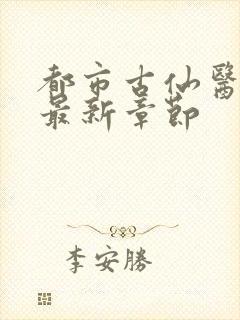 都市古仙醫
最新章節
李安勝